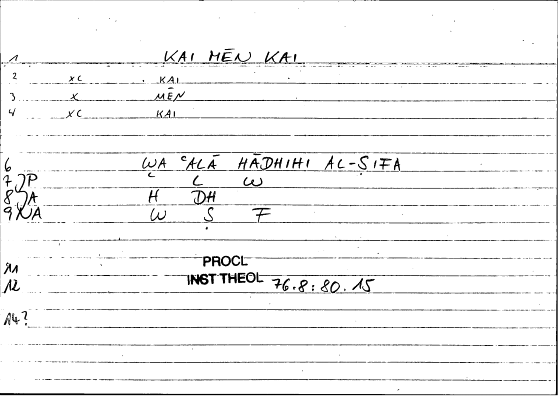 1 KAI MĒN KAI
2 XC KAI
3 X MĒN
4 XC KAI
6 WA ʿALĀ HĀDHIHI AL-ṢIFA
7 P ʿ L W
8 A H DH
9 NA W Ṣ F
11 PROCL
12 INST THEOL 76.8:80.15
14?